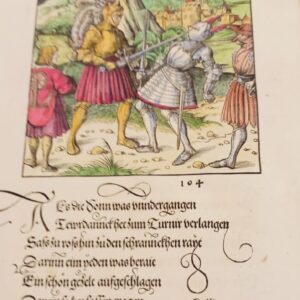 104
Als die Sonn was vndergangen
Tewrdannckhet zum Turnir verlangen
Sass zu roß hin zu den schrannckhen
Darinn eim yeden was
Ein schön gezelt aufgeschlagen